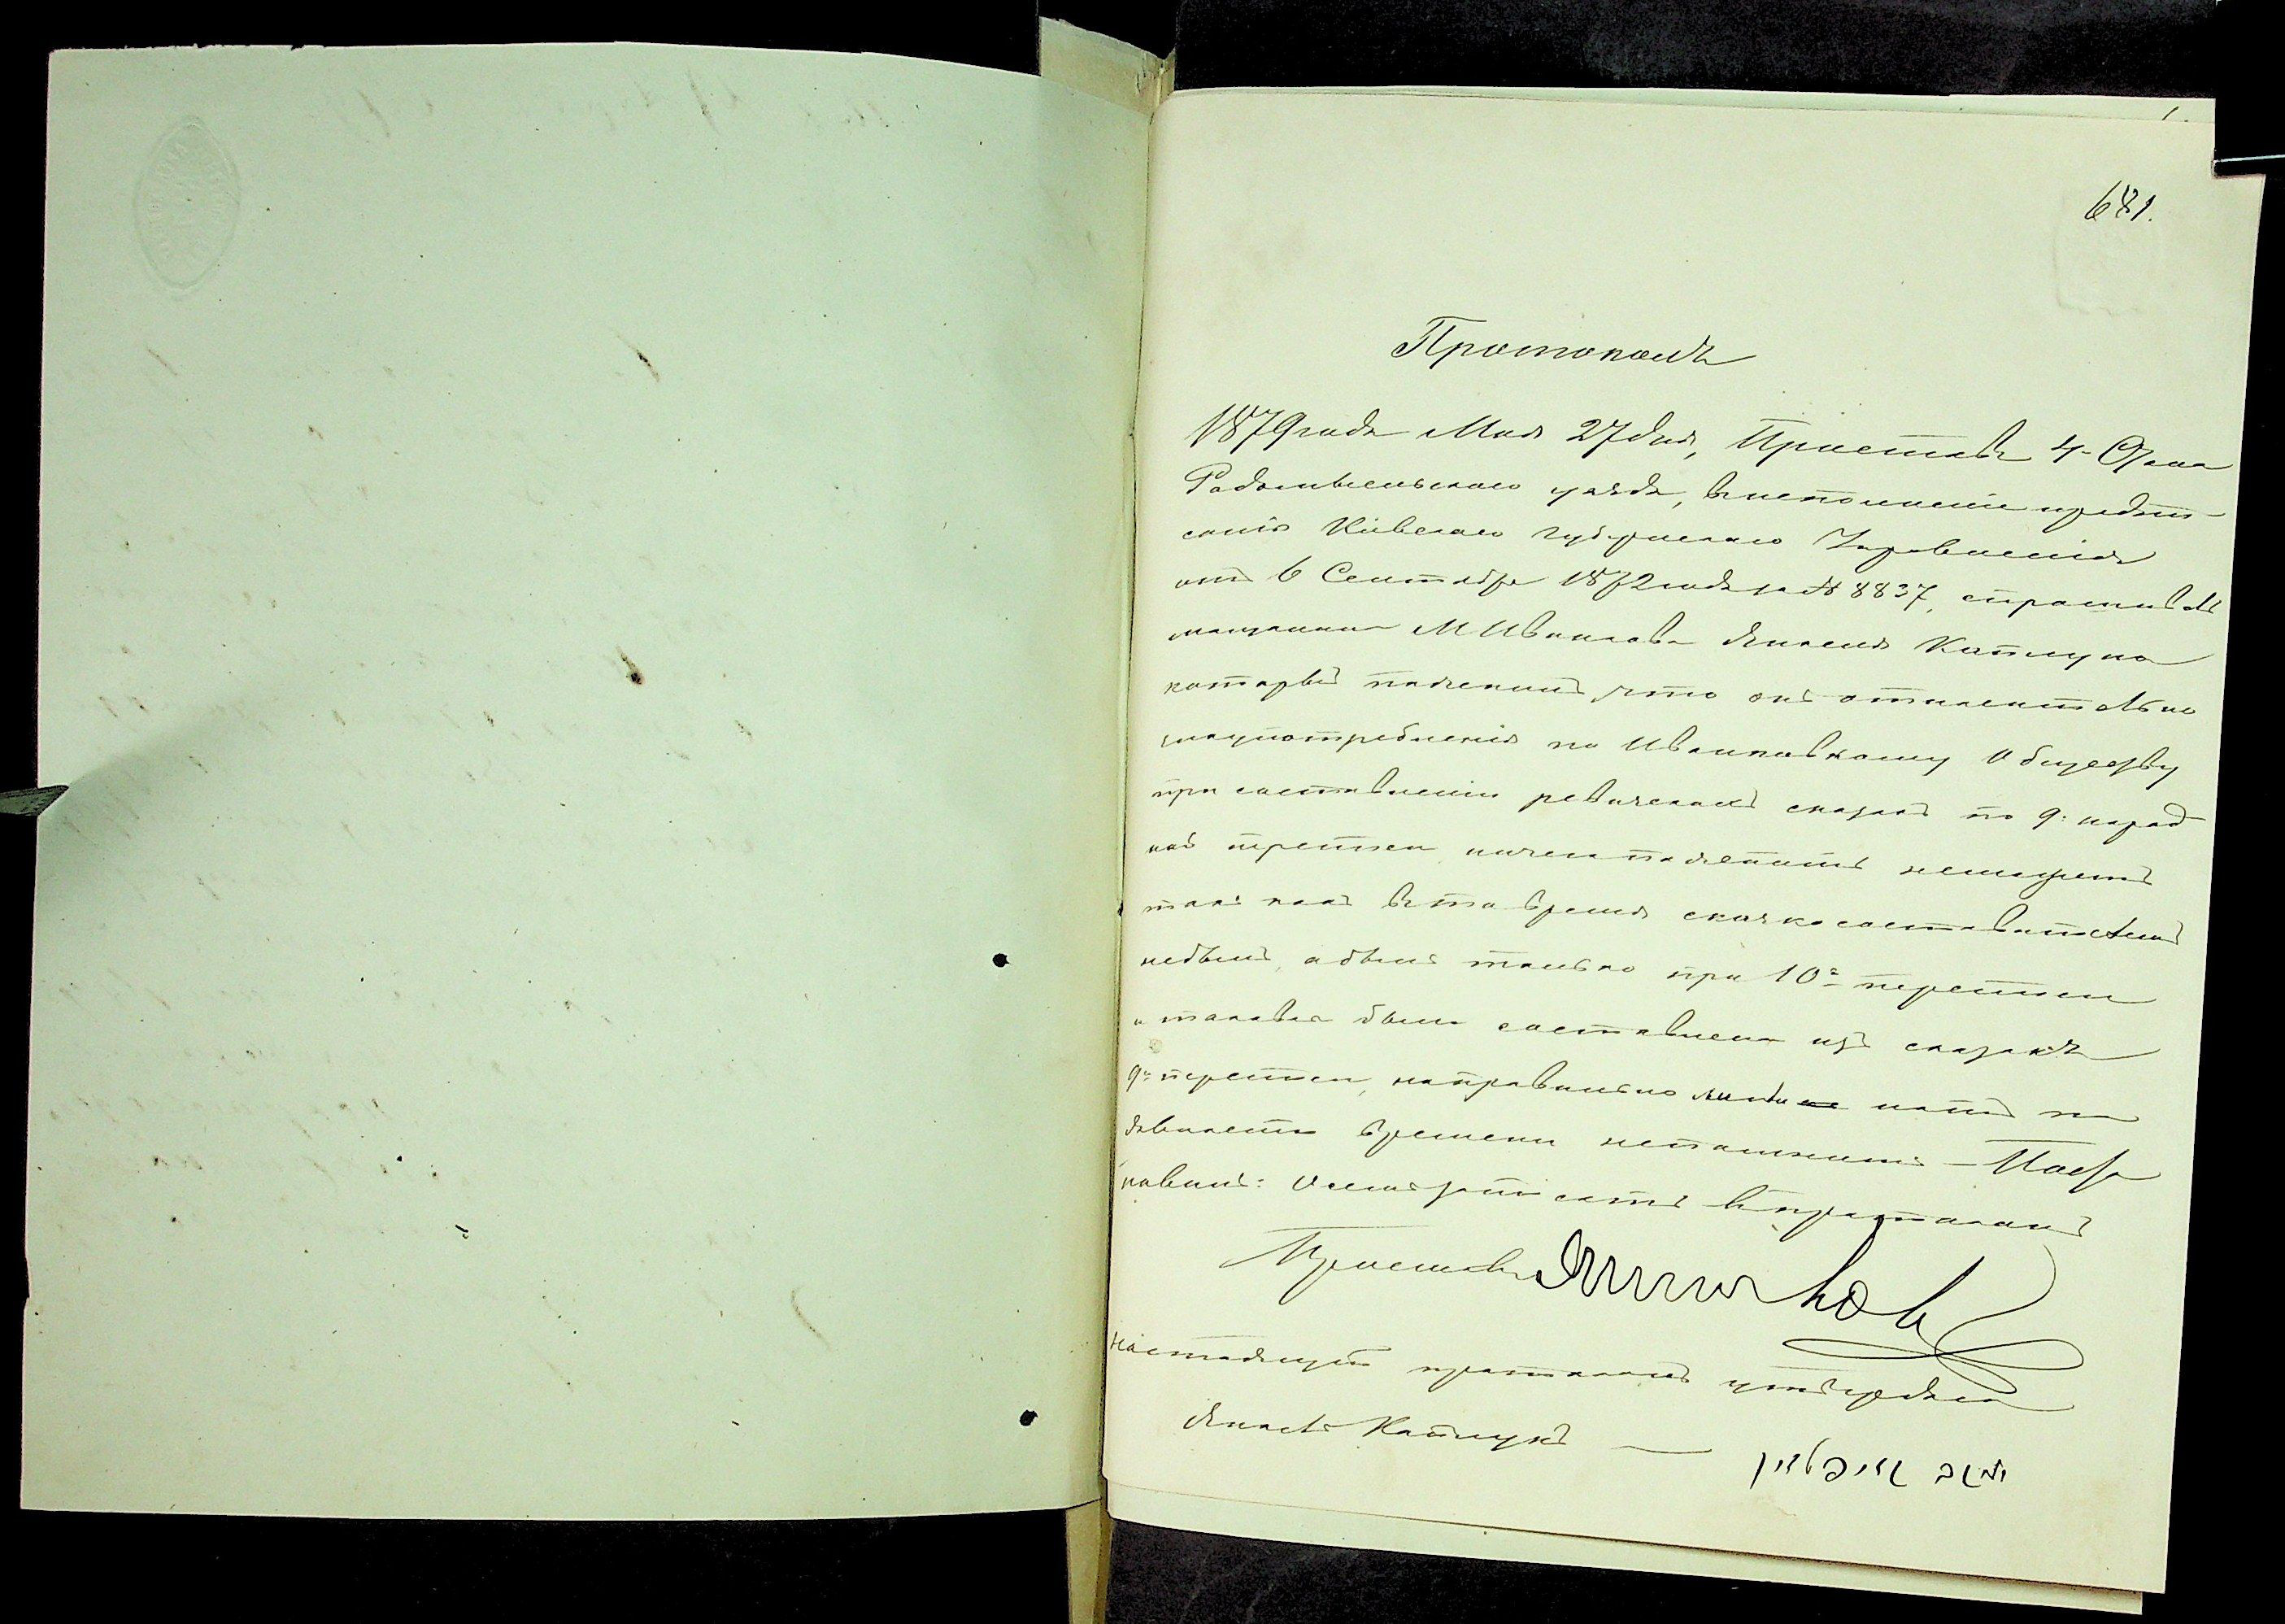 1.
681.
Протоколъ
1879 года Мая 27 дня, Приставъ 4 Стана
Радомысльскаго уѣзда, во исполненіе предпи-
санія Кіевскаго Губернскаго Управленія
отъ 6 Сентября 1872 года за № 8837, спрашивалъ
мѣщанина М. Иванкова Янкеля Каплуна
который пояснилъ, что онъ относительно
злоупотребленія по Иванковскому Обществу
при составленіи ревизскихъ сказокъ по 9й народ
ной переписи, ничего пояснить неможетъ
такъ какъ въ то время сказкосоставителемъ
небылъ, а былъ только при 10й переписи
и таковая была составлена изъ сказокъ
9й переписи, направильно или нѣтъ по
давности времени непомнитъ – Поста
новилъ: О семъ записать въ протоколъ
Приставъ
настоящій протоколъ утвердилъ
Янкель Каплунъ —